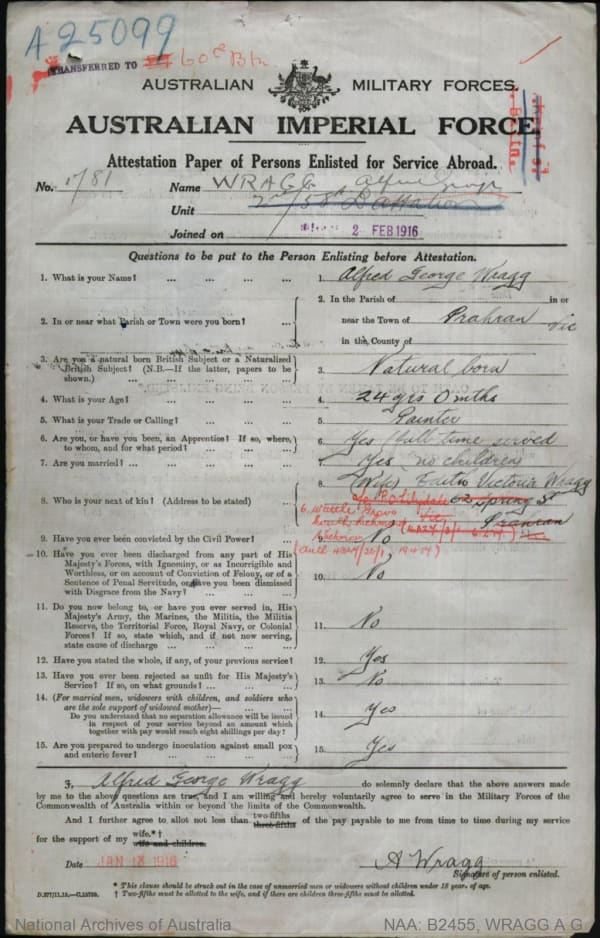 A25099
TRANSFERRED TO 60th Bn
AUSTRALIAN MILITARY FORCES.
AUSTRALIAN IMPERIAL FORCE
Attestation Paper of Persons Enlisted for Service Abroad.
No. 1781 Name WRAGG Alfred George
Unit 2nd/58th Battalion
Joined on 2 FEB 1916
Questions to be put to the Person Enlisting before Attestation.
1. What is your Name? ... ... ... ... 1. Alfred George Wragg
2. In or near what Parish or Town were you born? ... 2. In the Parish of in or
near the Town of Prahran Vic
in the County of
3. Are you a natural born British Subject or a Naturalized
British Subject? (N.B.—If the latter, papers to be
shown.) ... ... ... ... ... 3. Natural born
4. What is your Age? ... ... ... ... 4. 24 yrs 0 mths
5. What is your Trade or Calling? ... ... ... 5. Painter
6. Are you, or have you been, an Apprentice? If so, where,
to whom, and for what period? ... ... ... 6. Yes full time served
7. Are you married? ... ... ... ... 7. Yes no children
8. Who is your next of kin? (Address to be stated) ... 8. (Wife) Victoria Wragg
62 Spring St
Prahran
6, Wattle Grove
South Richmond
Vic
9. Have you ever been convicted by the Civil Power? ... 9. No
10. Have you ever been discharged from any part of His
Majesty's Forces, with Ignominy, or as Incorrigible and
Worthless, or on account of Conviction of Felony, or of a
Sentence of Penal Servitude, or have you been dismissed
with Disgrace from the Navy? ... ... ... 10. No
11. Do you now belong to, or have you ever served in, His
Majesty's Army, the Marines, the Militia, the Militia
Reserve, the Territorial Force, Royal Navy, or Colonial
Forces? If so, state which, and if not now serving,
state cause of discharge ... ... ... ... 11. No
12. Have you stated the whole, if any, of your previous service? 12. Yes
13. Have you ever been rejected as unfit for His Majesty's
Service? If so, on what grounds? ... ... ... 13. No
14. (For married men, widowers with children, and soldiers who
are the sole support of widowed mother)—
Do you understand that no separation allowance will be issued
in respect of your service beyond an amount which
together with pay would reach eight shillings per day? 14. Yes
15. Are you prepared to undergo inoculation against small pox
and enteric fever? ... ... ... ... 15. Yes
I, Alfred George Wragg do solemnly declare that the above answers made
by me to the above questions are true, and I am willing and hereby voluntarily agree to serve in the Military Forces of the
Commonwealth of Australia within or beyond the limits of the Commonwealth.
And I further agree to allot not less than two-fifths of the pay payable to me from time to time during my service
three-fifths
for the support of my wife.*†
wife and children.
Date JAN 1916 A Wragg
Signature of person enlisted.
* This clause should be struck out in the case of unmarried men or widowers without children under 18 years of age.
† Two-fifths must be allotted to the wife, and if there are children three-fifths must be allotted.
National Archives of Australia NAA: B2455, WRAGG A G